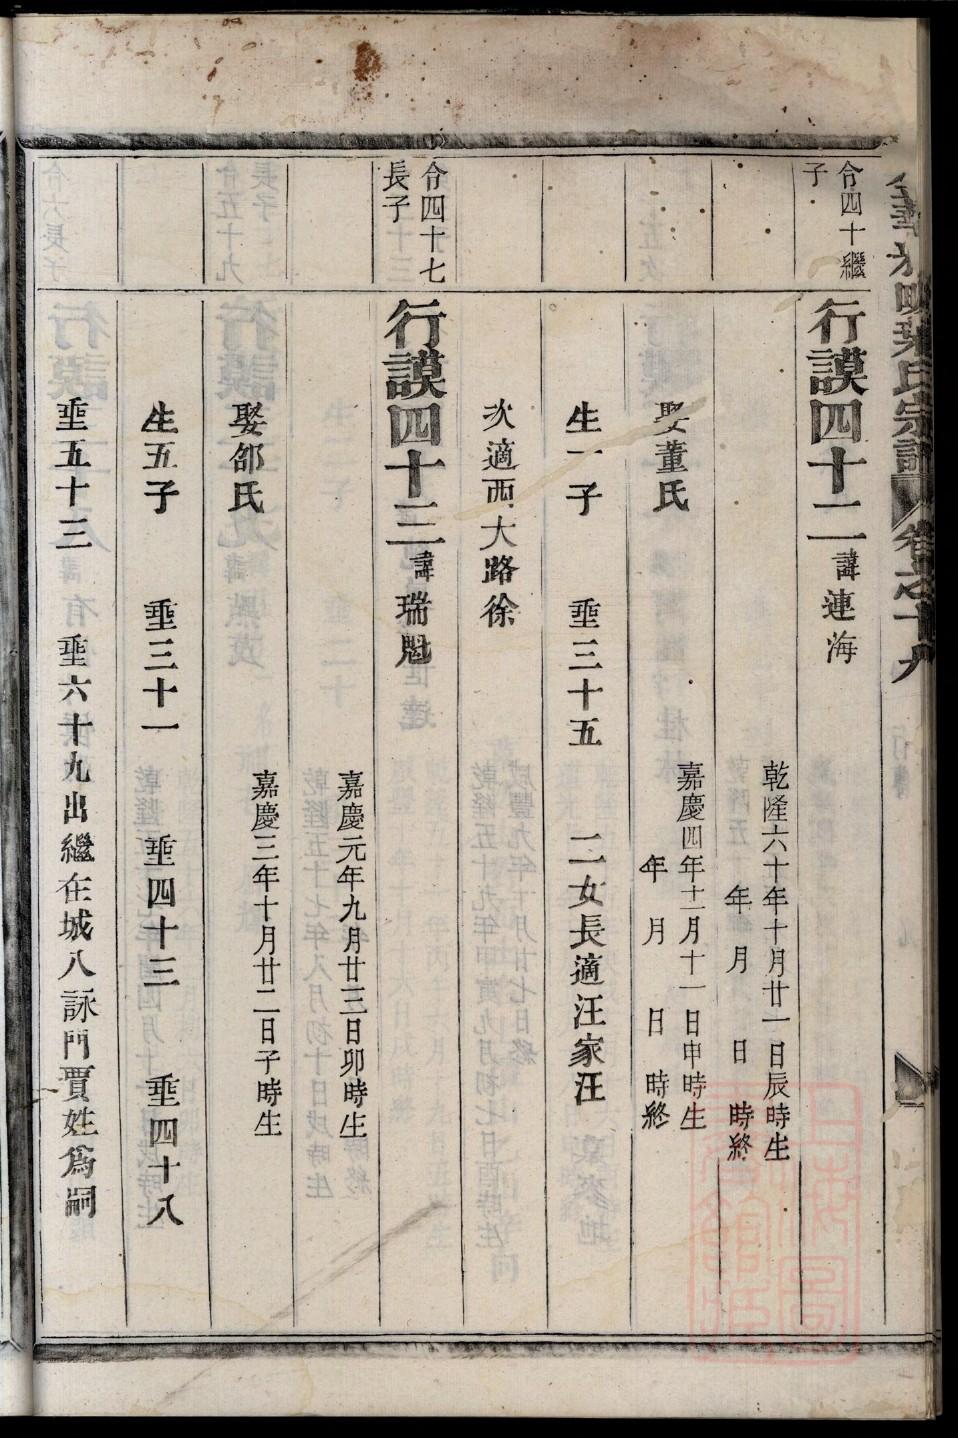 令四十繼
子
行謨四十二 諱連海
乾隆六十年十月廿一日辰時生
年 月 日 時終
娶董氏
嘉慶四年十二月十一日申時生
年 月 日 時終
生一子 垂三十五 二女長適汪家汪
次適西大路徐
令四十七
長子
行謨四十三 諱瑞魁
嘉慶元年九月廿三日卯時生
娶郤氏
嘉慶三年十月廿二日子時生
生五子 垂三十一 垂四十三 垂四十八
垂五十三 垂六十九出繼在城八詠門賈姓爲嗣